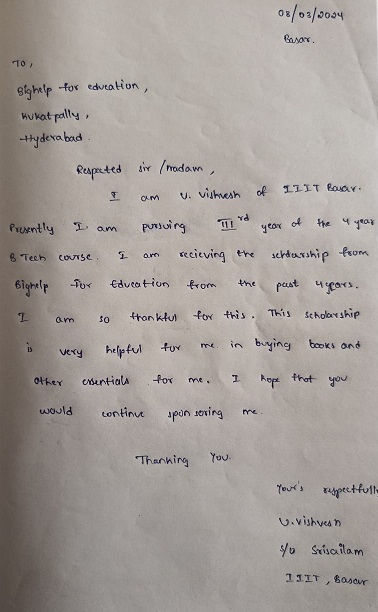 08/03/2024
Basar.
To,
Bighelp for education,
Kukatpally,
Hyderabad.
Respected sir/madam,
I am U. Vishvesh of IIIT Basar.
Presently I am pursuing IIIrd year of the 4 year
B Tech course. I am recieving the scholarship from
Bighelp for Education from the past 4 years.
I am so thankful for this. This scholarship
is very helpful for me in buying books and
other essentials for me. I hope that you
would continue sponsoring me.
Thanking You.
Your's respectfull
U. Vishvesh
S/o Srisailam
IIIT, Basar